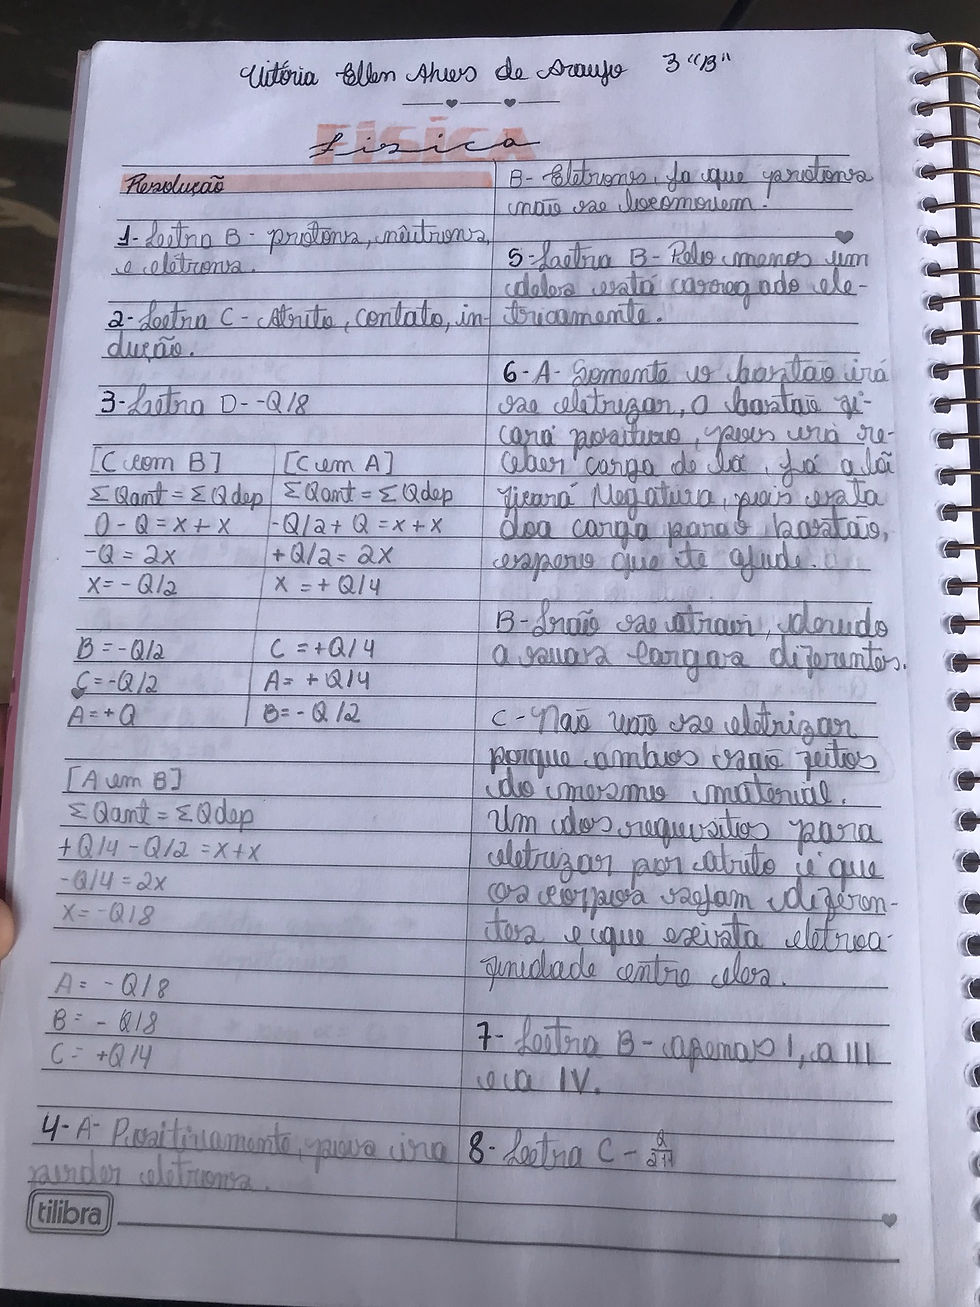 Vitória Ellen Alves de Araujo 3 "B"
FÍSICA
Física
Resolução
1- Leetra B - prótons, nêutrons,
e elétrons.
2- Leetra C - Atrito, contato, in-
dução.
3- Letra D - -Q/8
[C com B] [C em A]
ΣQant = ΣQdep ΣQant = ΣQdep
0 - Q = x + x -Q/2 + Q = x + x
-Q = 2x +Q/2 = 2x
x = - Q/2 x = + Q/4
B = - Q/2 C = +Q/4
C = -Q/2 A = + Q/4
A = +Q B = - Q/2
[A em B]
ΣQant = ΣQdep
+Q/4 - Q/2 = x + x
-Q/4 = 2x
x = -Q/8
A = - Q/8
B = - Q/8
C = +Q/4
4- A- Positivamente, pois irá
perder eletrons.
B- Eletrons, já que protons
não se locomovem!
5- Laetra B - Pelo menos um
deles está carregado ele-
tricamente.
6- A- Somente o bastão irá
se eletrizar, o bastão fi-
cará positivo, pois irá re-
ceber carga de lã, Já a lã
ficará Negativa, pois esta
doa carga para o bastão,
espero que te ajude.
B- Irão se atrair, devido
a suas cargas diferentes.
C- Não irão se eletrizar
porque ambos são feitos
do mesmo material.
Um dos requisitos para
eletrizar por atrito é que
os corpos sejam diferen-
tes e que exista eletroa-
finidade entre eles.
7- Leetra B - apenas I, a III
e a IV.
8- Leetra C -
tilibra